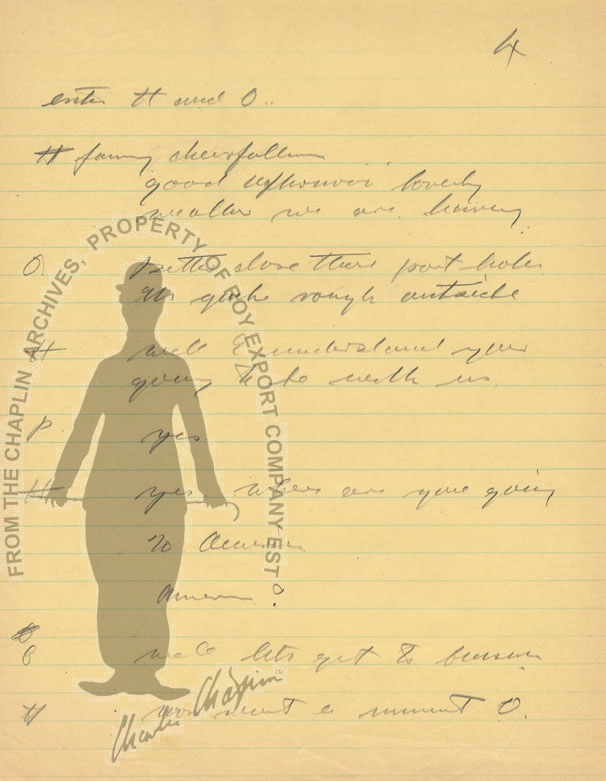 4
enter H and O..
H funny cheerfullness
good afternoon lovely
weather we are having
O. better close these port holes
its quite rough outside
H well I understand your
going to be with us.
P. yes
H yes where are you going
To America
America ?
O well lets get to business
H just a moment O.
FROM THE CHAPLIN ARCHIVES, PROPERTY OF ROY EXPORT COMPANY EST
Charlie Chaplin™